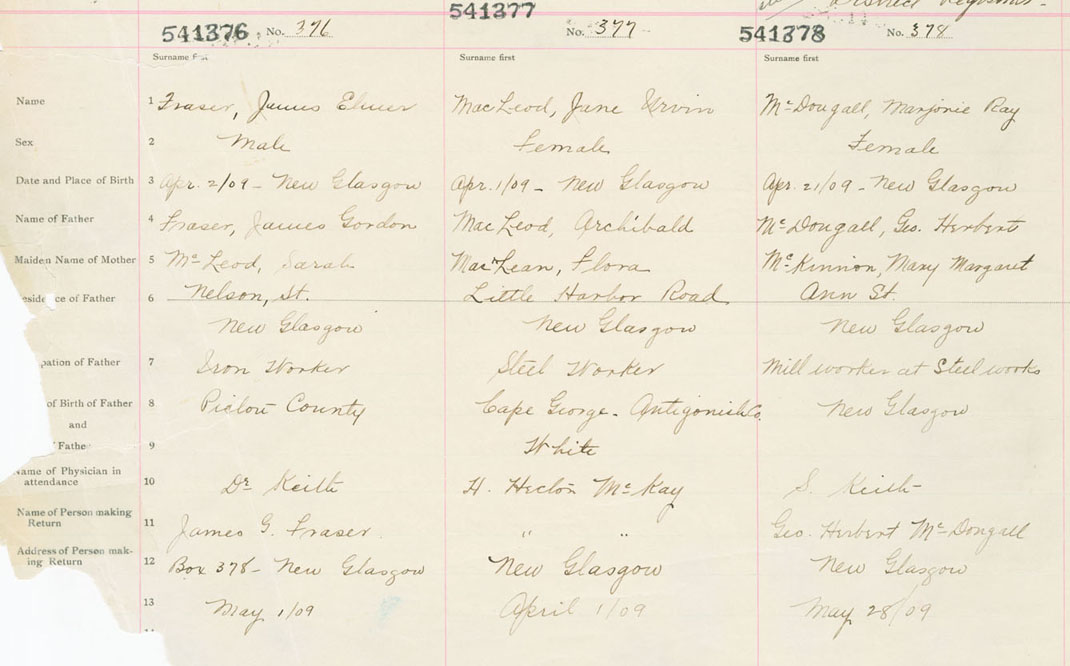 District Registrar.
541376 No. 376
541377 No. 377
541378 No. 378
Surname first
Surname first
Surname first
Name 1 Fraser, James Elmer
MacLeod, Jane Urvin
McDougall, Marjorie Ray
Sex 2 Male
Female
Female
Date and Place of Birth 3 Apr. 2/09 - New Glasgow
Apr. 1/09 - New Glasgow
Apr. 21/09 - New Glasgow
Name of Father 4 Fraser, James Gordon
MacLeod, Archibald
McDougall, Geo. Herbert
Maiden Name of Mother 5 McLeod, Sarah
MacLean, Flora
McKinnon, Mary Margaret
esidence of Father 6 Nelson, St.
Little Harbor Road
Ann St.
New Glasgow
New Glasgow
New Glasgow
pation of Father 7 Iron Worker
Steel Worker
Mill worker at Steel works
of Birth of Father 8 Pictou County
Cape George - Antigonish Co.
New Glasgow
and
Father 9
White
Name of Physician in
attendance 10 Dr Keith
H. Hector McKay
S. Keith
Name of Person making
Return 11 James G. Fraser.
" "
Geo. Herbert McDougall
Address of Person mak-
ing Return 12 Box 378 - New Glasgow
New Glasgow
New Glasgow
13 May 1/09
April 1/09
May 28/09